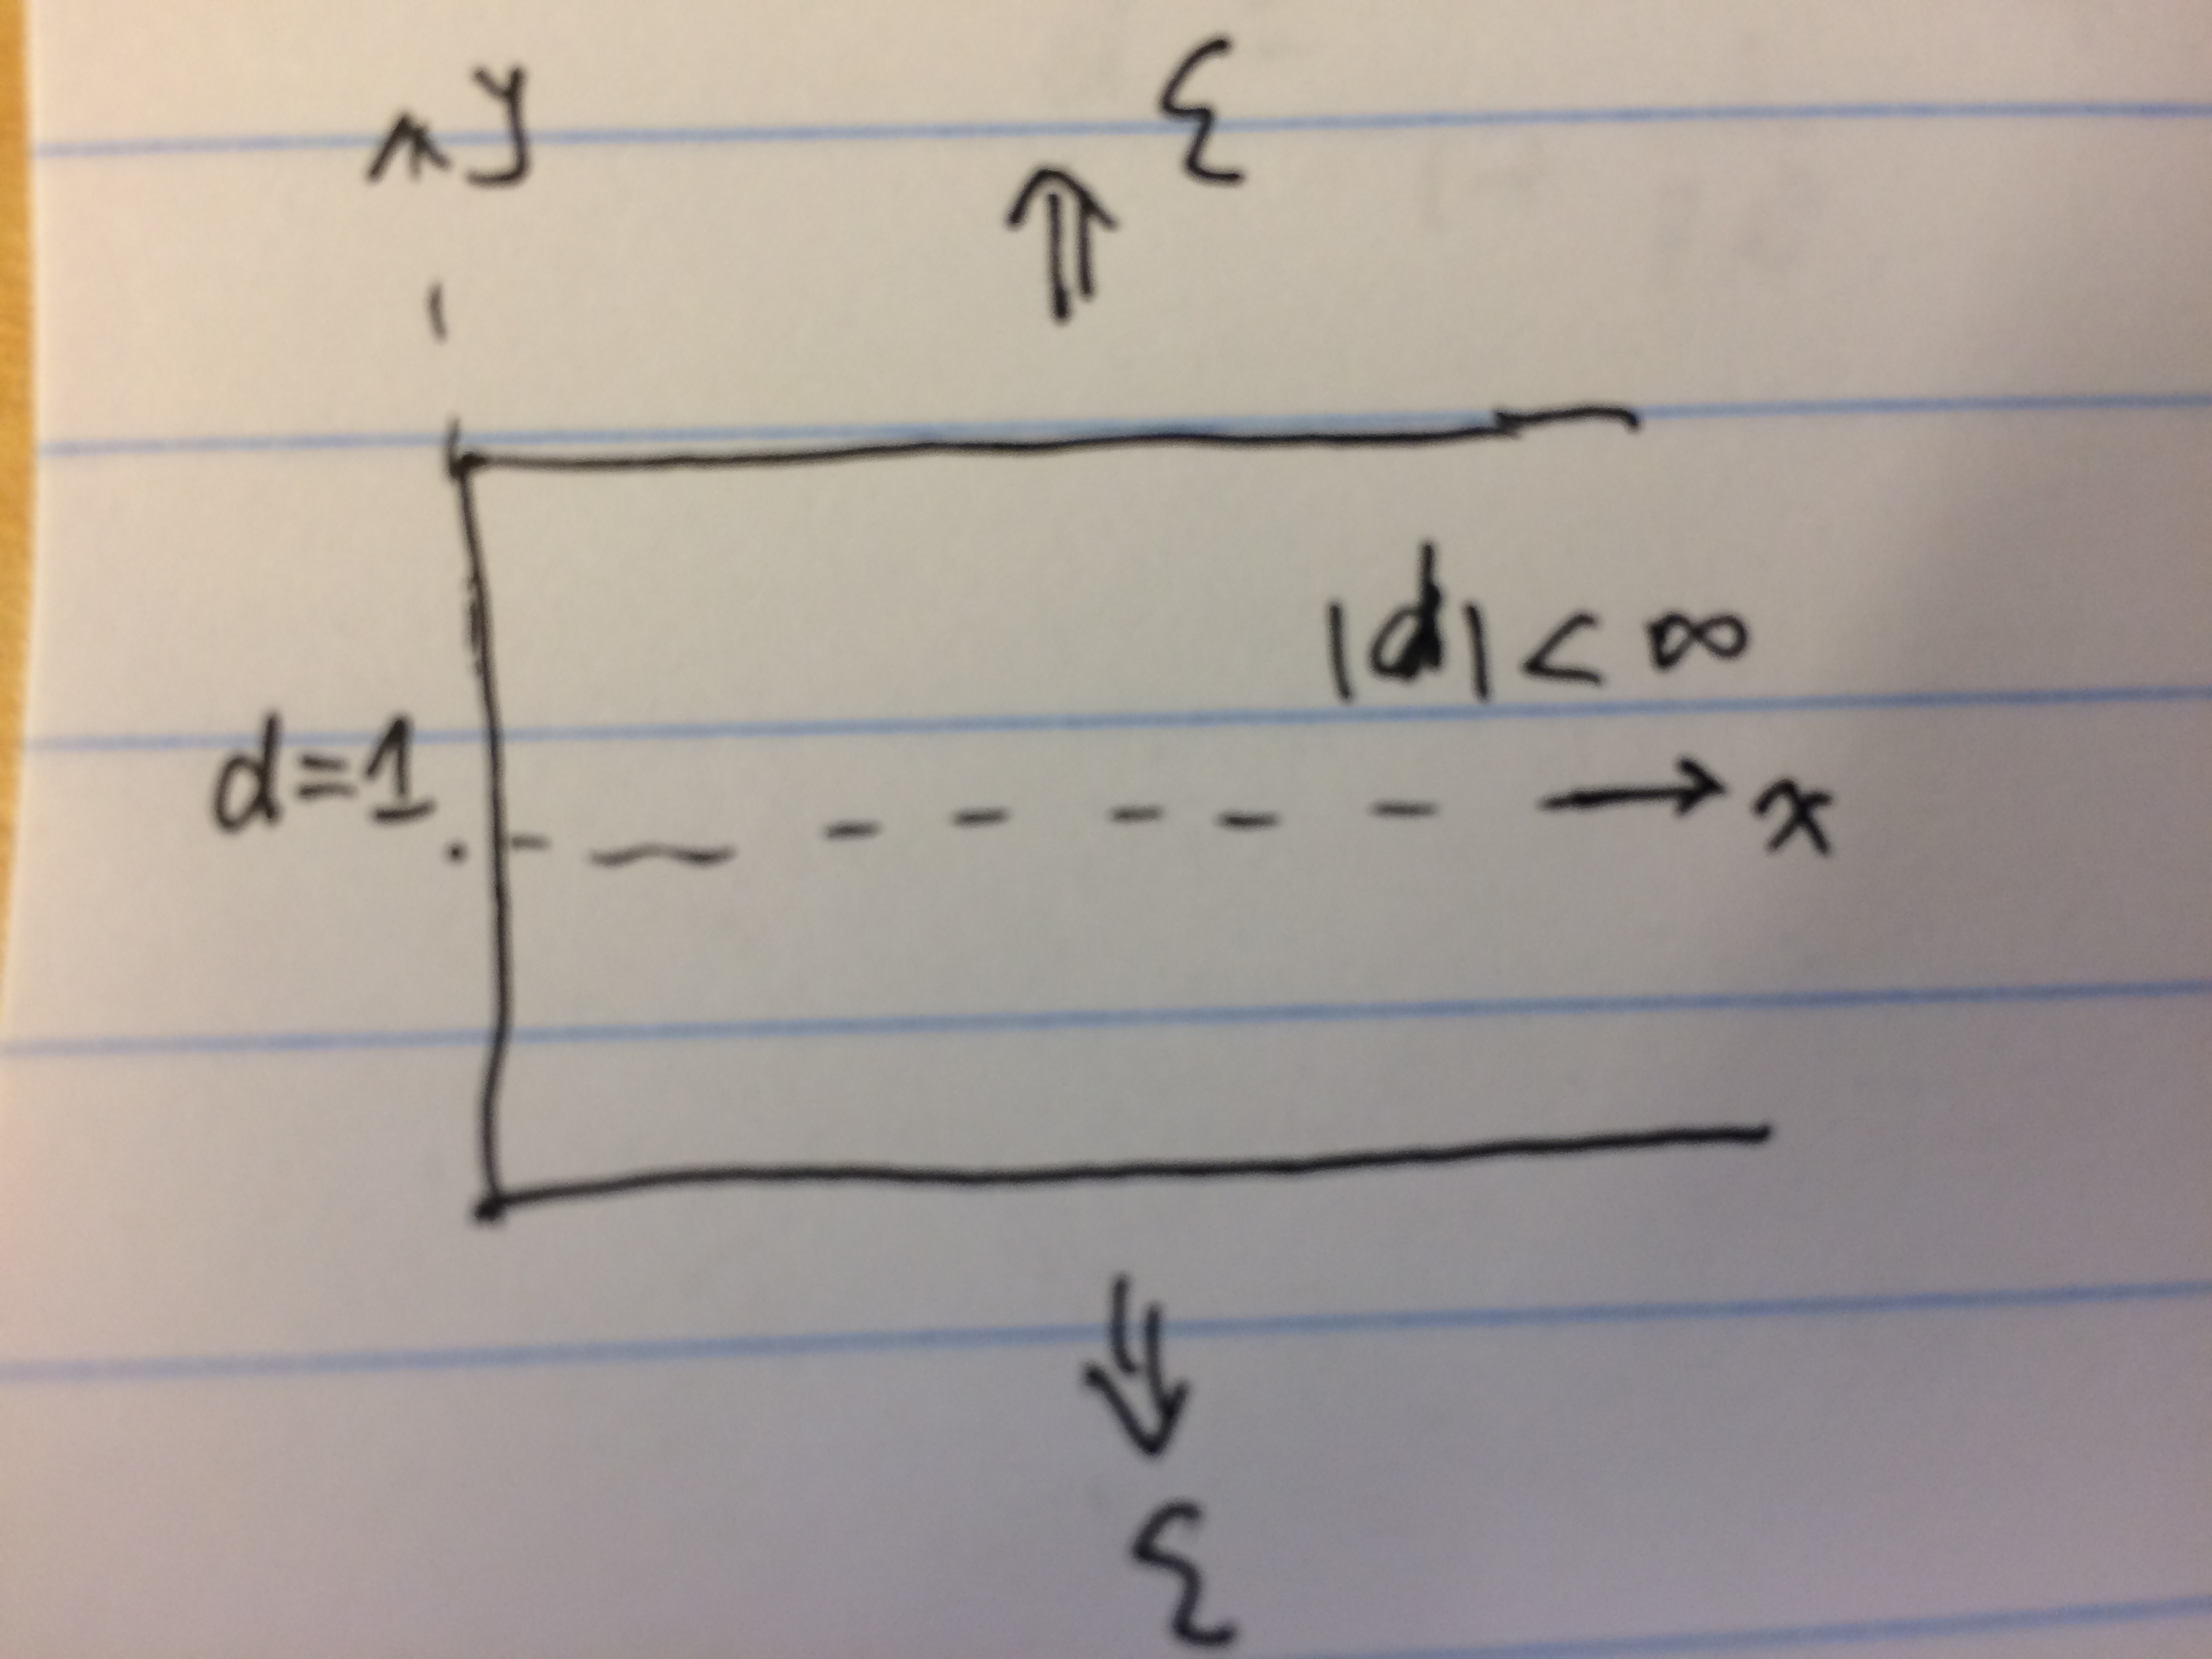 y
d=1
|d| < ∞
x